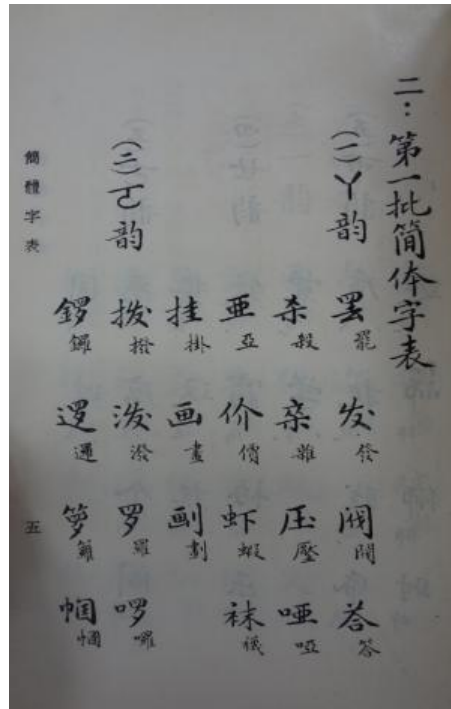 二：第一批简体字表
(一)ㄚ韵
罢罷 发發 阀閥 荅答
杀殺 杂雜 压壓 唖啞
亜亞 价價 虾蝦 袜襪
挂掛 画畫 劃
(二)ㄛ韵
拨撥 泼潑 罗羅 啰囉
锣鑼 逻邏 箩籮 帼幗
簡體字表
五